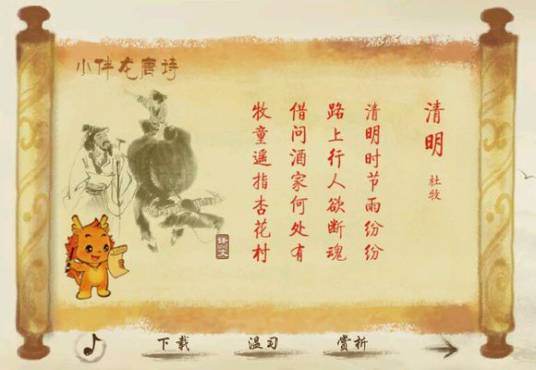 小伴龙唐诗
清明
杜牧
清明时节雨纷纷
路上行人欲断魂
借问酒家何处有
牧童遥指杏花村
译文
下载
温习
赏析